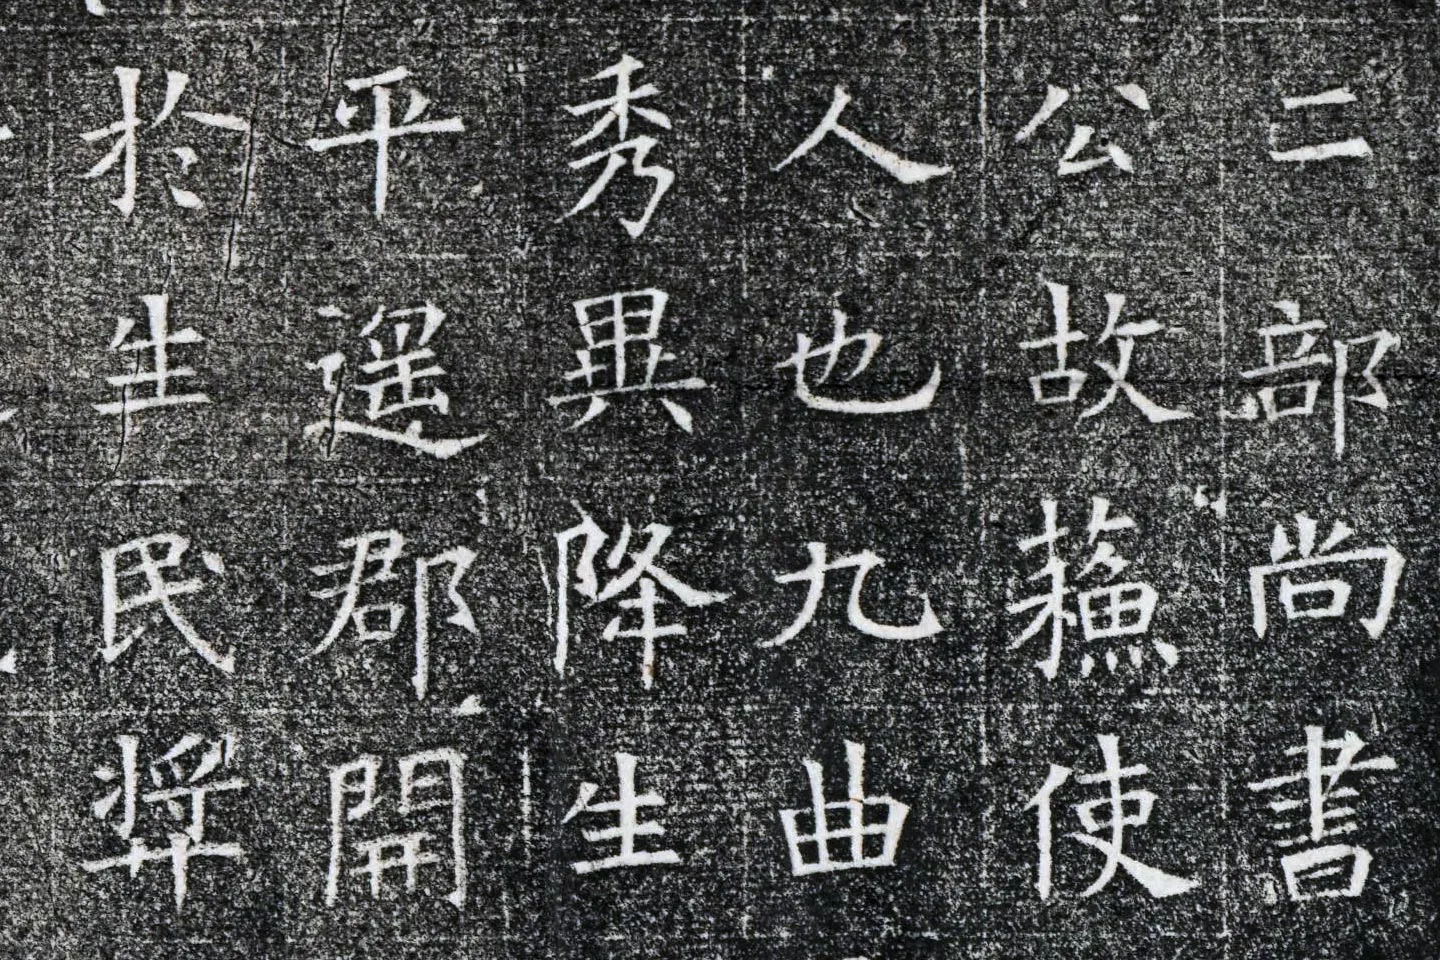 二部尚書
公故蘓使
人也九曲
秀異降生
平遥郡開
於生民弉